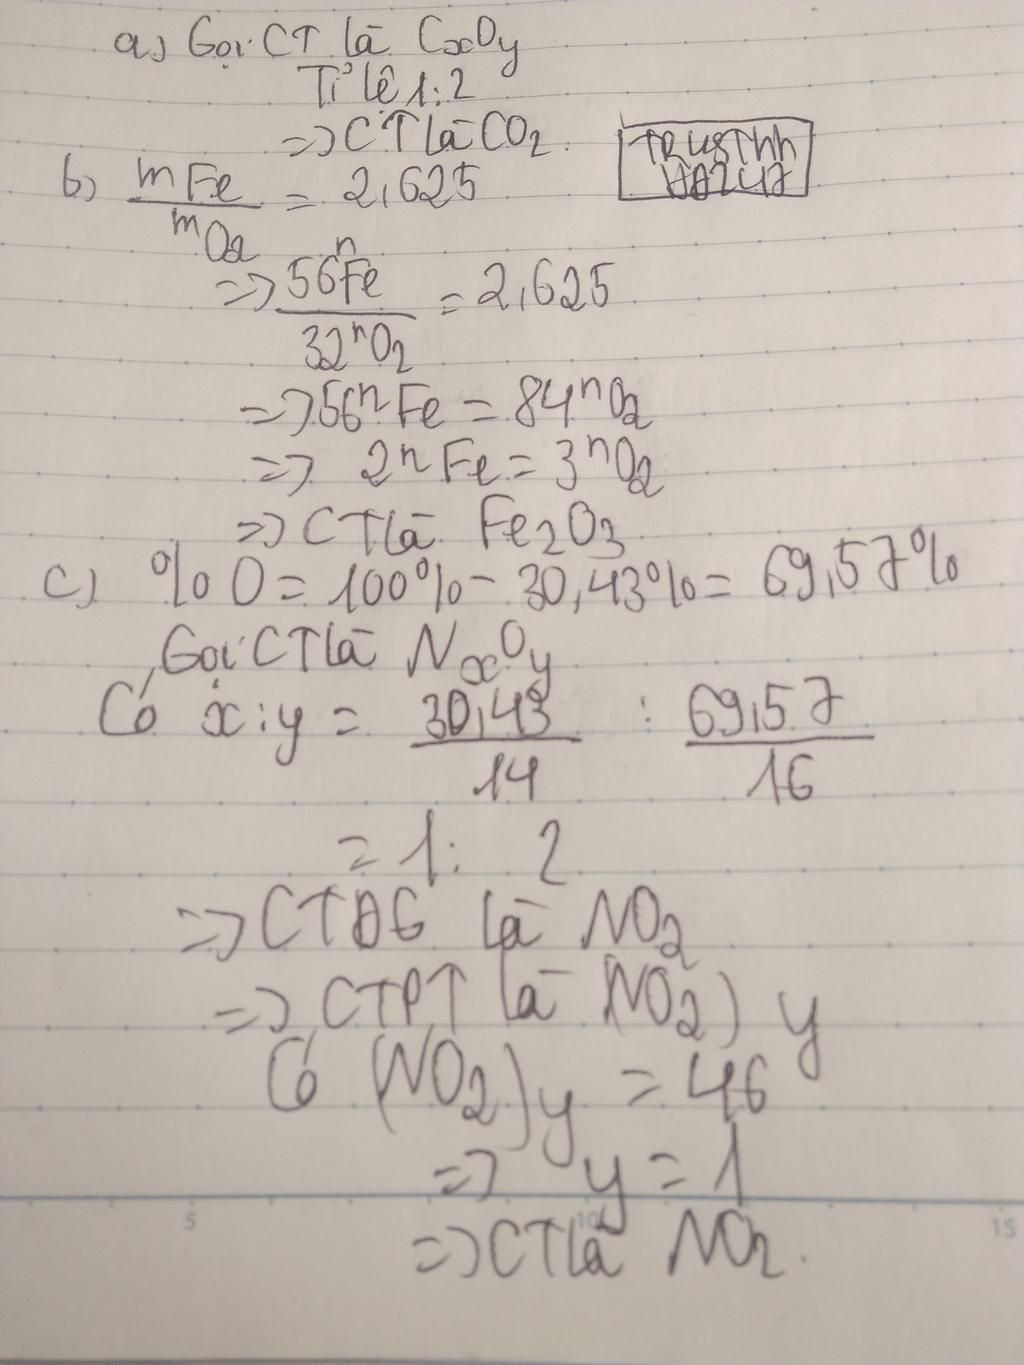 a) Gọi CT là CxOy
Tỉ lệ 1:2
=> CT là CO2.
TRUSThh
b) mFe/mO2 = 2,625
=> 56nFe/32nO2 = 2,625
=> 56nFe = 84nO2
=> 2nFe = 3nO2
=> CT là Fe2O3
c) %O = 100% - 30,43% = 69,57%
Gọi CT là NxOy
Có x:y = 30,43/14 : 69,57/16
= 1: 2
=> CTĐG là NO2
=> CTPT là (NO2)y
Có (NO2)y = 46
=> y = 1
5 10 15
=> CT là NO2.